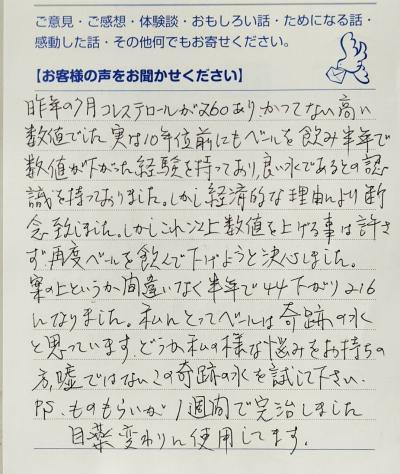 ご意見・ご感想・体験談・おもしろい話・ためになる話・
感動した話・その他何でもお寄せください。
【お客様の声をお聞かせください】
昨年の9月コレステロールが260あり、かつてない高い
数値でした 実は10年位前にもベールを飲み半年で
数値が下がった経験を持っており、良い水であるとの認
識を持っておりました。しかし経済的な理由により断
念致しました。しかしこれ以上数値を上げる事は許さ
ず再度ベールを飲んで下げようと決心しました。
案の上というか間違いなく半年で44下がり216
になりました。私にとってベールは奇跡の水
と思っています。どうか私の様な悩みをお持ちの
方、嘘ではないこの奇跡の水を試して下さい。
P.S. ものもらいが1週間で完治しました
目薬変わりに使用してます。